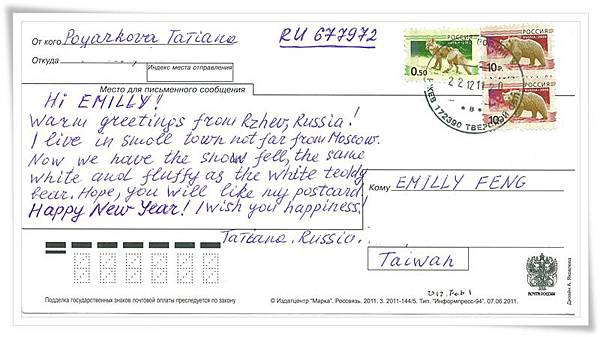 От кого Poyarkova Tatiana
RU 677972
Откуда
Индекс места отправления
Место для письменного сообщения
Hi EMILLY!
Warm greetings from Rzhev, Russia!
I live in small town not far from Moscow.
Now we have the snow fell, the same
white and fluffy as the white teddy
bear. Hope, you will like my postcard.
Happy New Year! I wish you happiness!
Tatiana. Russia.
0.50
РОССИЯ
10 р.
РОССИЯ
10 р.
22 12 11
РЖЕВ 172390 ТВЕРСКОЙ
Кому EMILLY FENG
Taiwan
ПОЧТА РОССИИ
Дизайн А. Яковлева
2012. Feb 1
Подделка государственных знаков почтовой оплаты преследуется по закону
© Издатцентр "Марка". Россвязь. 2011. З. 2011-144/5. Тип. "Информпресс-94". 07.06.2011.